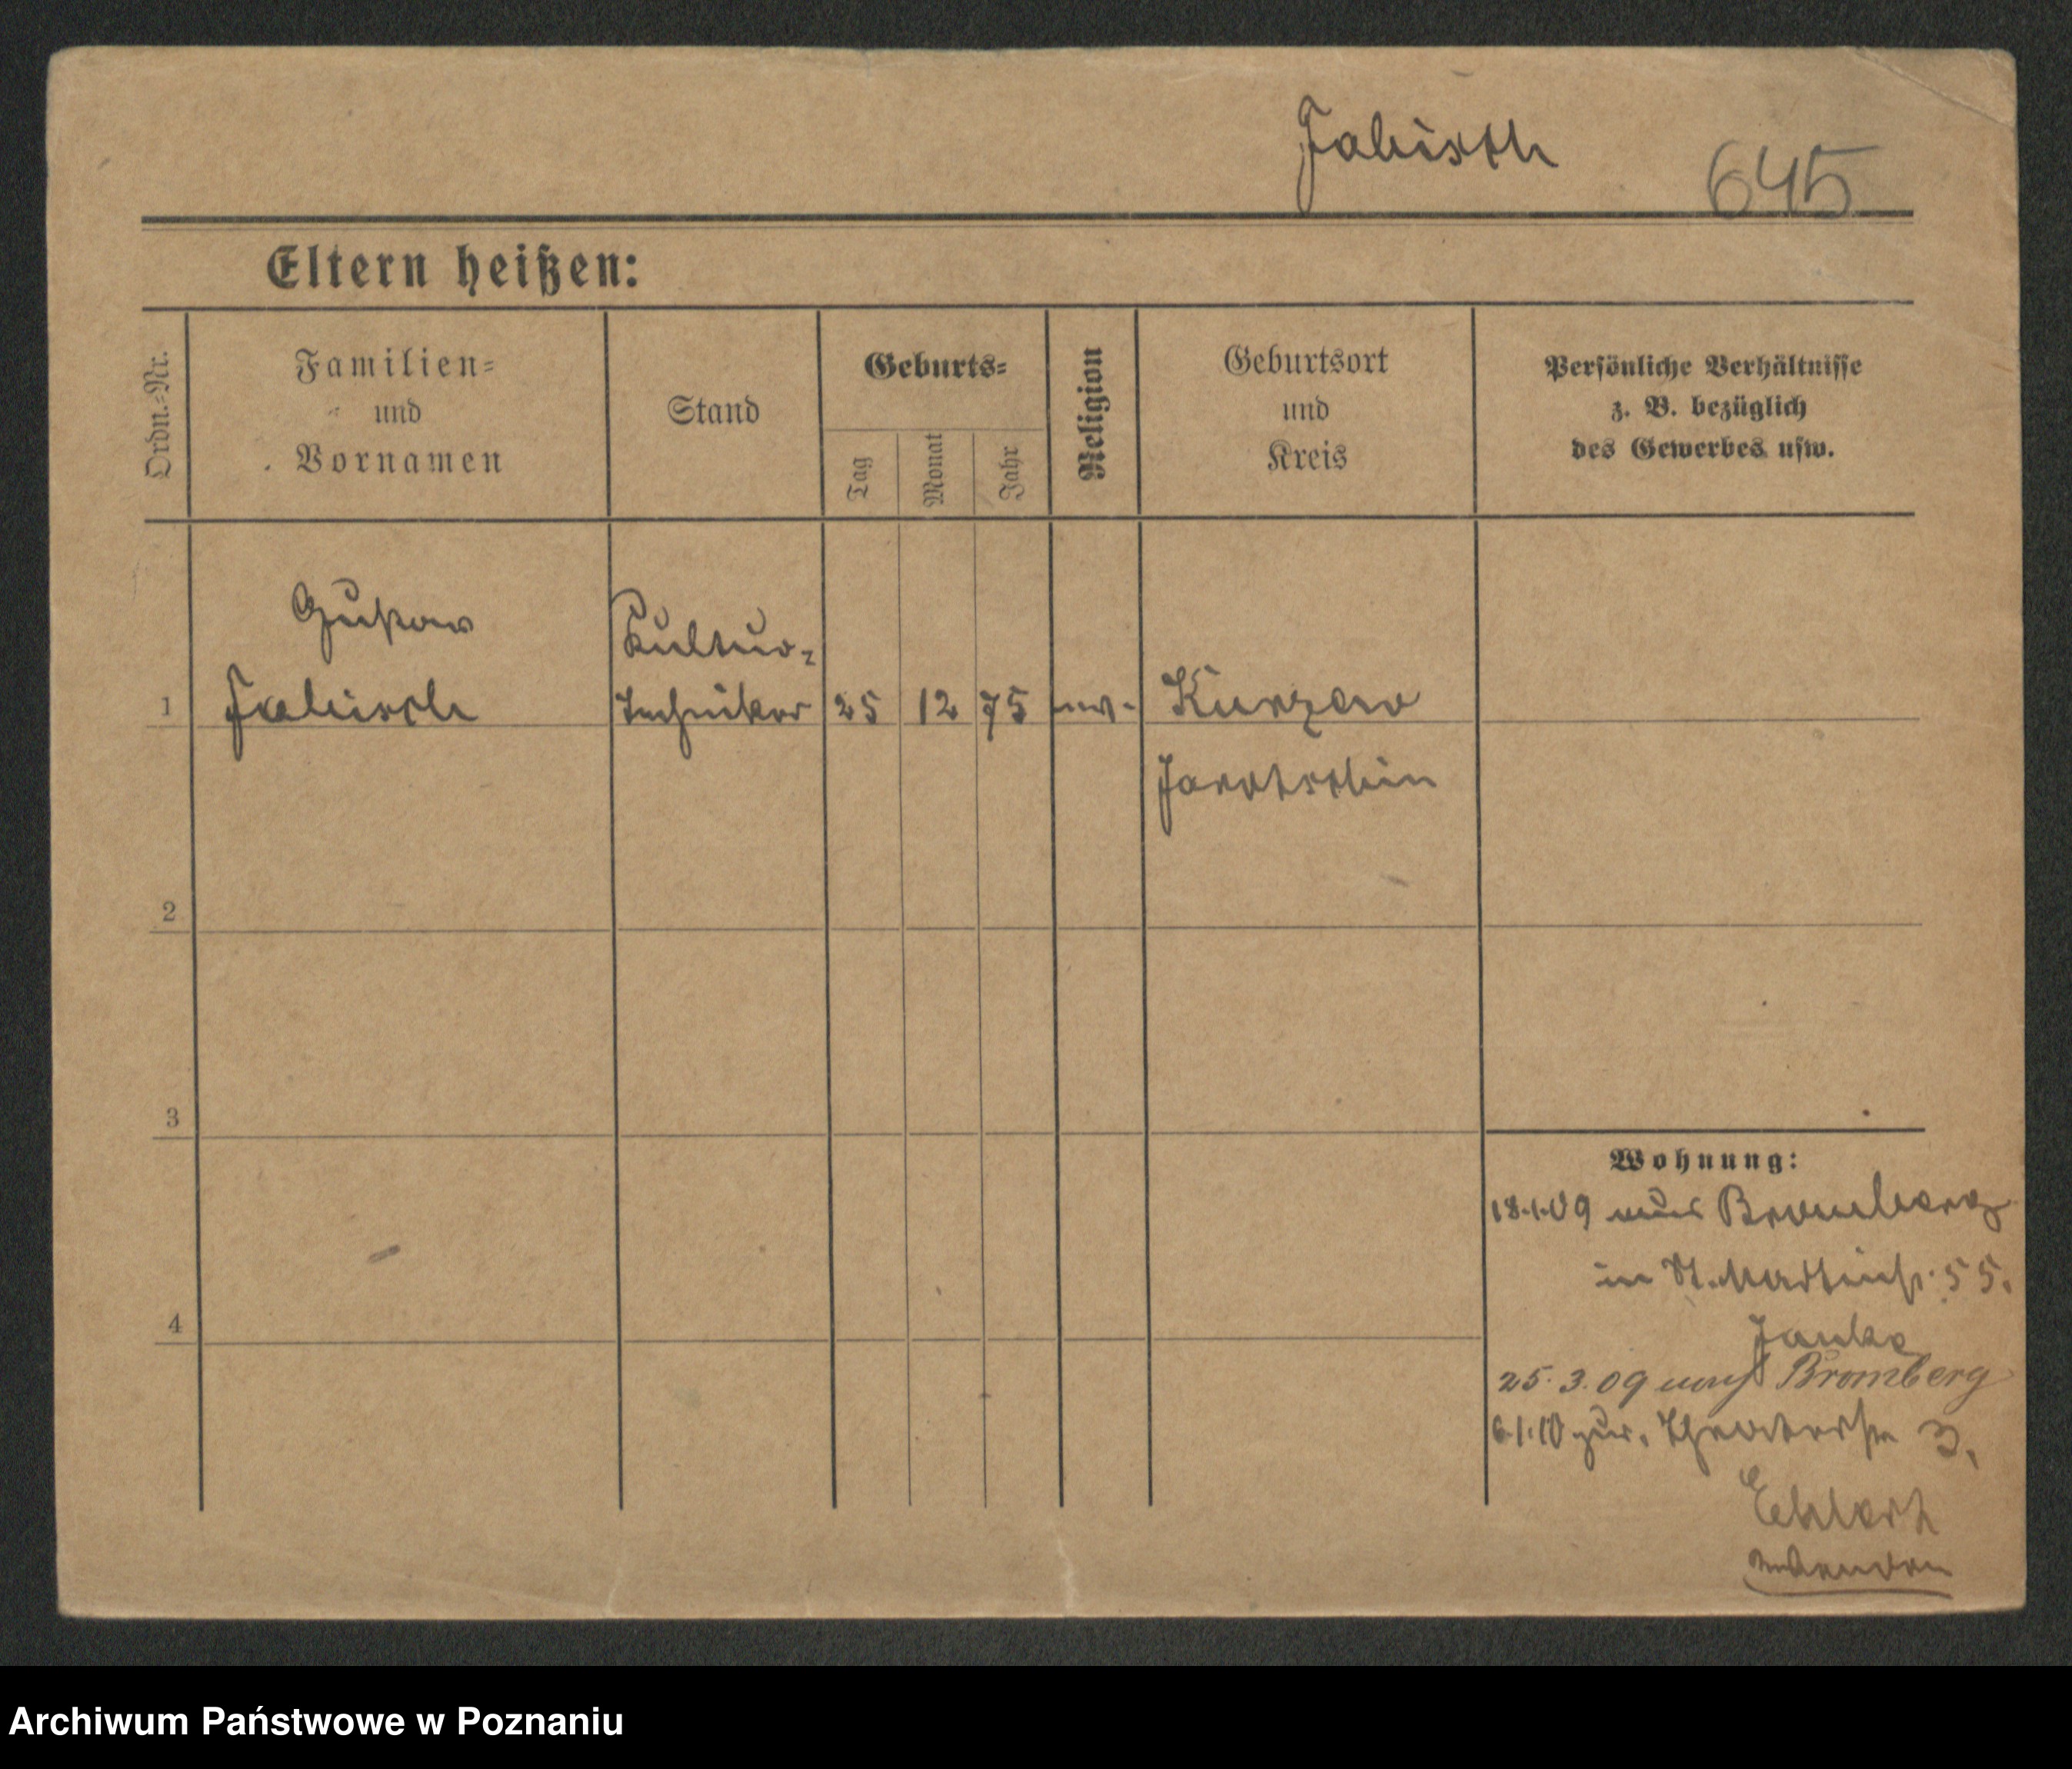 Fabisch 645
Eltern heißen:
Ordn.-Nr.
Familien-
und
Vornamen
Stand
Geburts-
Tag
Monat
Jahr
Religion
Geburtsort
und
Kreis
Persönliche Verhältnisse
z. B. bezüglich
des Gewerbes usw.
Gustav
Fabisch
Kultur-
techniker
1
25 12 75
ev.
Kurzew
Jarotschin
2
3
4
Wohnung:
18.1.09 aus Bromberg
in St. Martinstr. 55.
Janke
25.3.09 nach Bromberg
6.1.10 zur. Theaterstr 3.